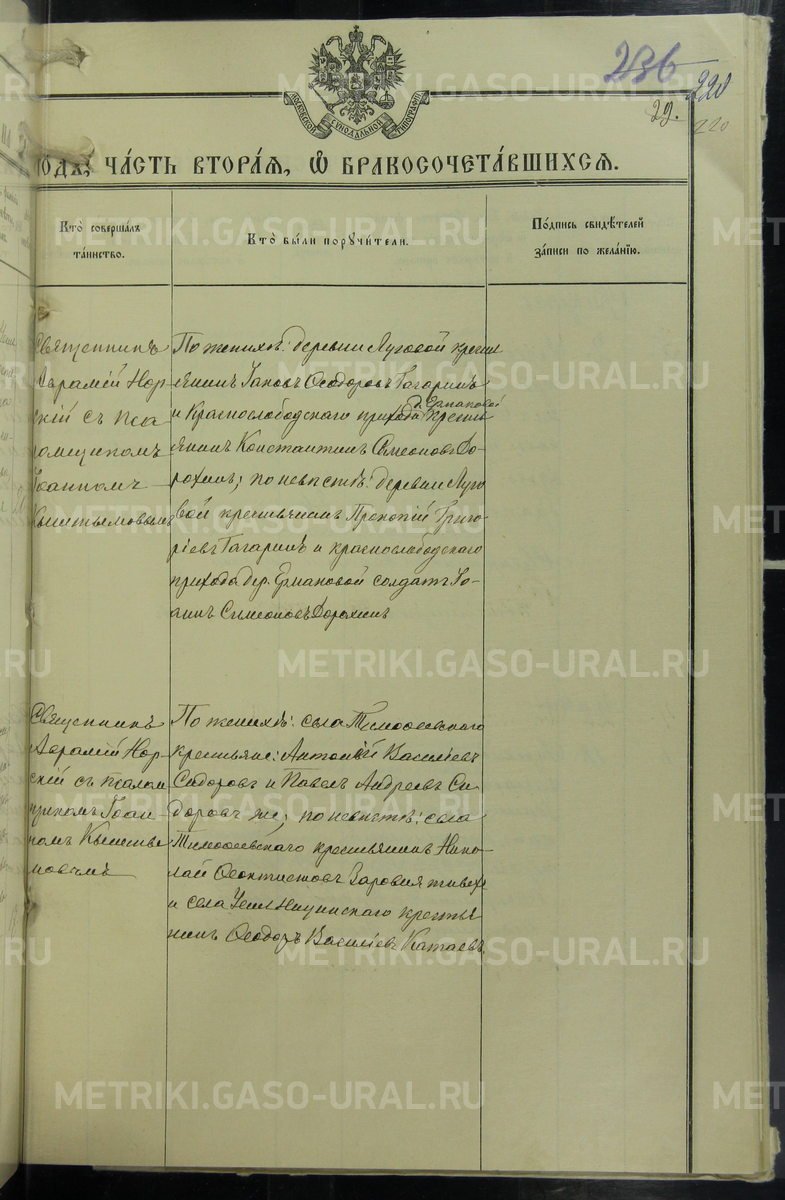 236
220
22.
220
МОСКОВСКОЙ СѴНОДАЛЬНОЙ ТИПОГРАФІИ
ГОДꙊ, ЧА́СТЬ ВТОРА́Я, Ѿ БРАКОСОЧЕТА́ВШИХСЯ.
Кто̀ соверша́лъ
та́инство.
Кто̀ бы́ли порꙋчи́тели.
По́дпись свидѣ́телей
за́писи по жела́нію.
Священникъ
Аврамій Нор-
скій съ пса-
ломщикомъ
Іоанномъ
Кыштымовымъ
По женихѣ: деревни Луговой крестья
янинъ Іаковъ Ѳеодоровъ Гагаринъ
и Краснослободскаго прихода д. Ермаковой кресть
янинъ Константинъ Симеоновъ До-
рохинъ; по невѣстѣ: деревни Луго
вой крестьянинъ Прокопій Григо-
ріевъ Гагаринъ и краснослободскаго
прихода дер. Ермаковой солдатъ Іо-
аннъ Симеоновъ Дорохинъ
Священникъ
Аврамій Нор-
скій съ псалом
щикомъ Іоан-
номъ Кышты
мовымъ
По женихѣ: села Тимоѳеевскаго
крестьяне: Антоній Василіевъ
Сидоровъ и Павелъ Андреевъ Си
доровъ же; по невѣстѣ: села
Тимоѳеевскаго крестьянинъ Нико-
лай Ѳеоктистовъ
и села Усть Ницинскаго кресть
янинъ Ѳеодоръ Василіевъ Катаевъ.
METRIKI.GASO-URAL.RU